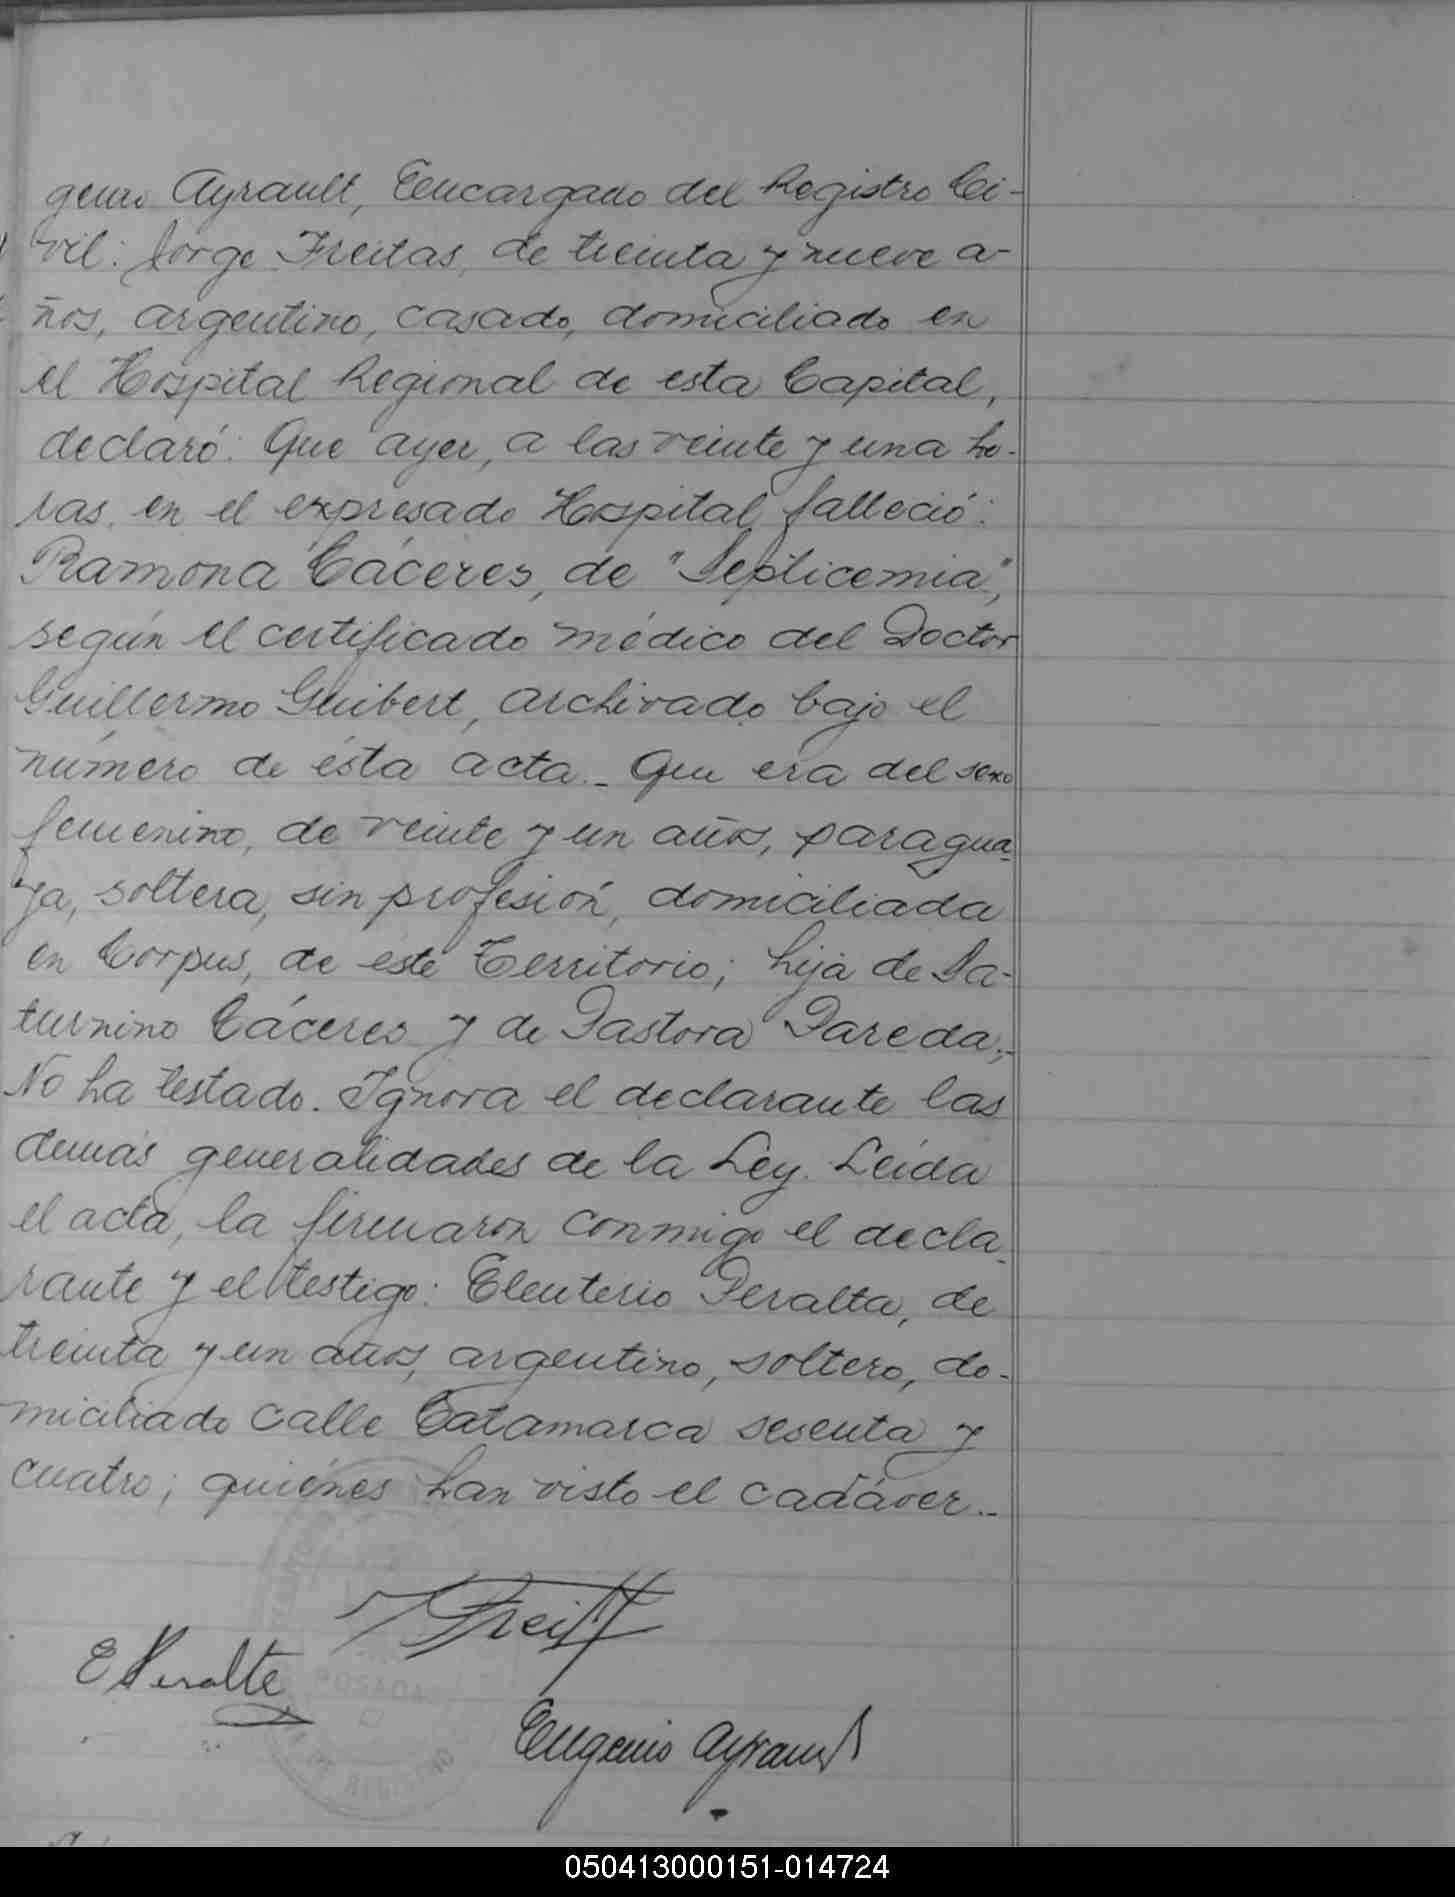 genio Ayrault, Encargado del Registro Ci-
vil: Jorge Freitas, de treinta y nueve a-
ños, argentino, casado, domiciliado en
el Hospital Regional de esta Capital,
declaró: Que ayer, a las veinte y una ho-
ras, en el expresado Hospital, falleció:
Ramona Cáceres, de "Septicemia",
según el certificado médico del Doctor
Guillermo Guibert, archivado bajo el
número de ésta acta.- Que era del sexo
femenino, de veinte y un años, paragua-
ya, soltera, sin profesión, domiciliada
en Corpus, de este Territorio; hija de Sa-
turnino Cáceres y de Pastora Pareda.-
No ha testado. Ignora el declarante las
demás generalidades de la Ley. Leida
el acta, la firmaron conmigo el decla-
rante y el testigo: Eleuterio Peralta, de
treinta y un años, argentino, soltero, do-
miciliado calle Catamarca sesenta y
cuatro; quiénes han visto el cadáver.-
E Peralta
Eugenio Ayrault
POSADAS
DE REGISTRO
050413000151-014724